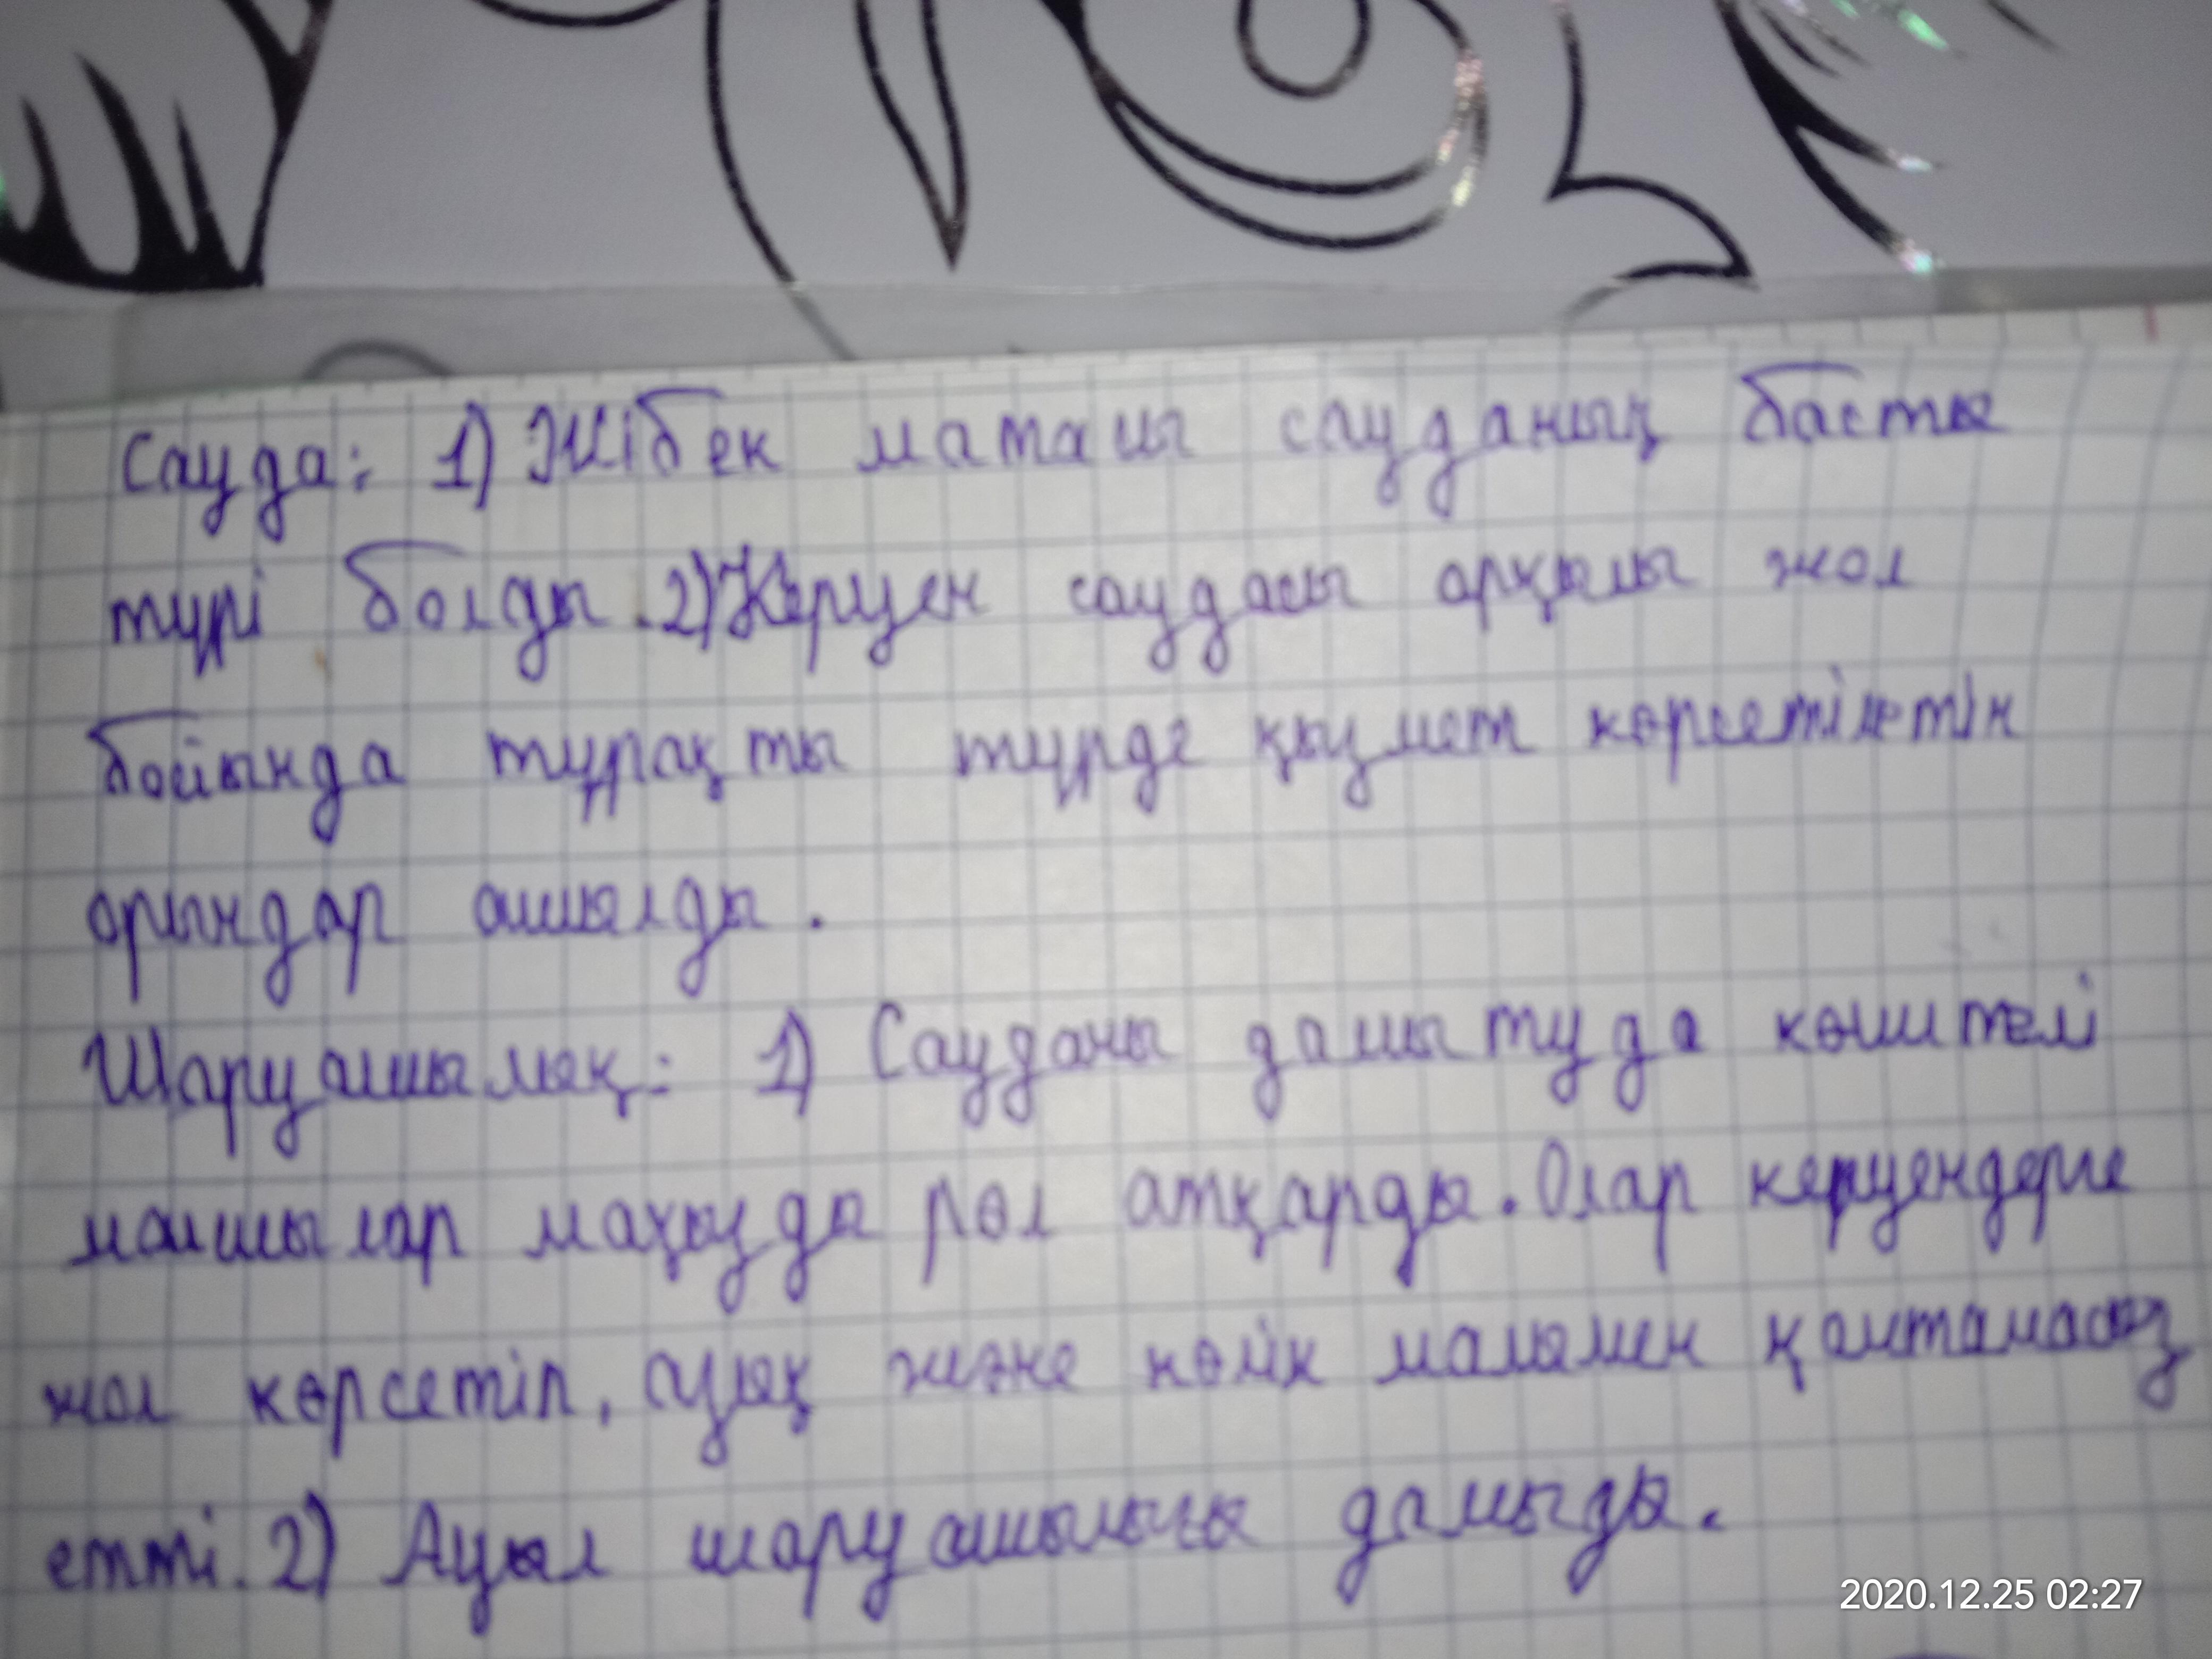 Сауда: 1) Жібек матасы сауданың басты
түрі болды. 2) Керуен саудасы арқылы жол
бойында тұрақты түрде қызмет көрсетілетін
орындар ашылды.
Шаруашылық: 1) Сауданы дамытуда көшпелі
малшылар маңызды рөл атқарды. Олар керуендерге
жол көрсетіп, азық және көлік малымен қамтамасыз
етті. 2) Ауыл шаруашылығы дамыды.
2020.12.25 02:27